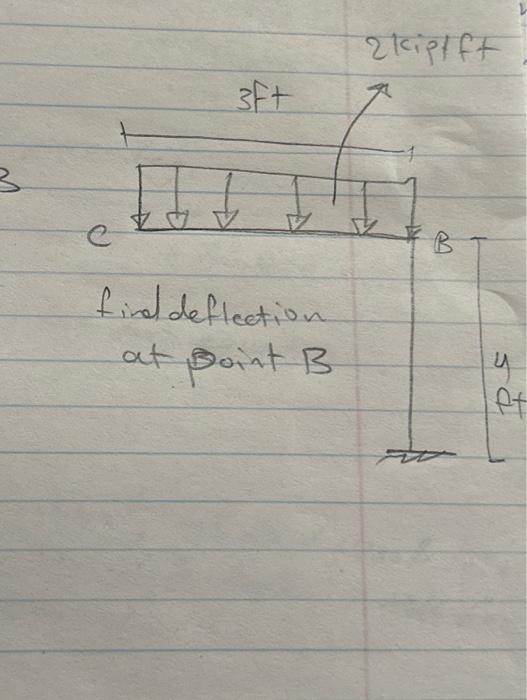 2kip/ft
3ft
3
C
B
find deflection
at point B
4
ft